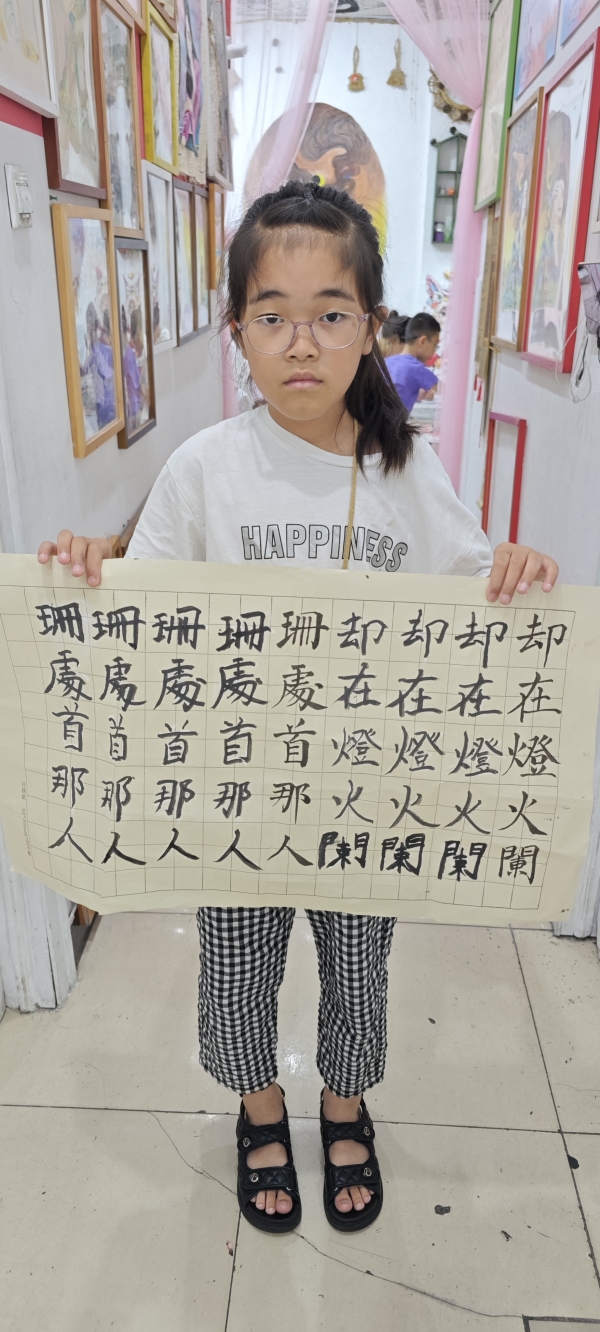 HAPPINESS
却在燈火闌
却在燈火闌
却在燈火闌
却在燈火闌
珊處首那人
珊處首那人
珊處首那人
珊處首那人
珊處首那人